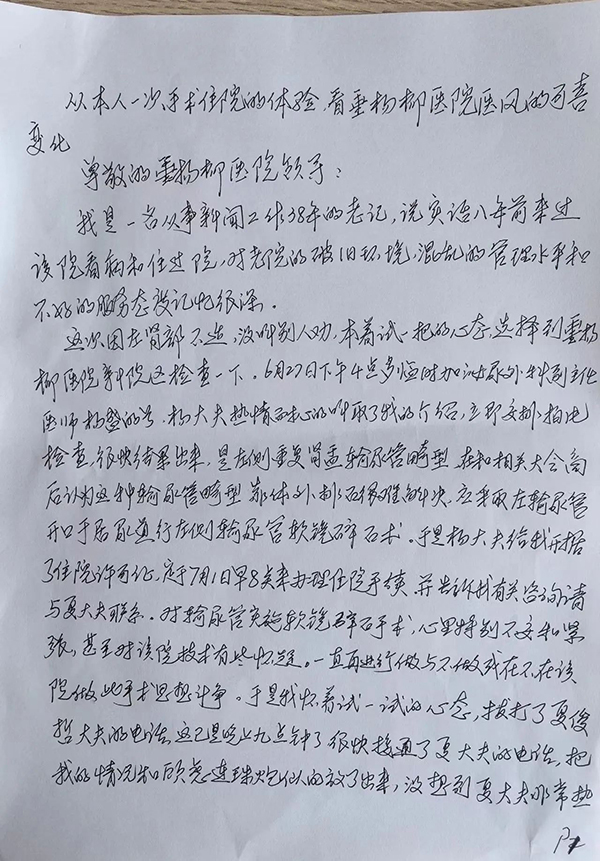 从本人一次手术住院的体验,看垂杨柳医院医风的可喜
变化
尊敬的垂杨柳医院领导:
我是一名从事新闻工作38年的老记,说实话八年前来过
该院看病和住过院,对老院的破旧环境,混乱的管理水平和
不好的服务态度记忆很深。
这次因左肾部不适,没听别人劝,本着试一把的心态,选择到垂杨
柳医院新院区检查一下。6月27日下午4点多临时加泌尿外科副主任
医师杨盛的号,杨大夫热情耐心的听取了我的介绍,立即安排拍电
检查,很快结果出来,是左侧重复肾盂输尿管畸型,在和相关大会商
后认为这种输尿管畸型靠体外排石很难解决,应采取左输尿管
开口于后尿道行左侧输尿管软镜碎石术。于是杨大夫给我开据
了住院许可证,定于7月1日早8点来办理住院手续,并告诉我有关咨询请
与夏大夫联系。对输尿管实施软镜碎石手术,心里特别不安和紧
张,甚至对该院技术有些怀疑。一直再进行做与不做或在不在该
院做此手术思想斗争。于是我怀着试一试的心态,拨打了夏俊
哲大夫的电话,这已是晚上九点钟了很快接通了夏大夫的电话,把
我的情况和顾虑连珠炮似的放了出来,没想到夏大夫非常热
P1